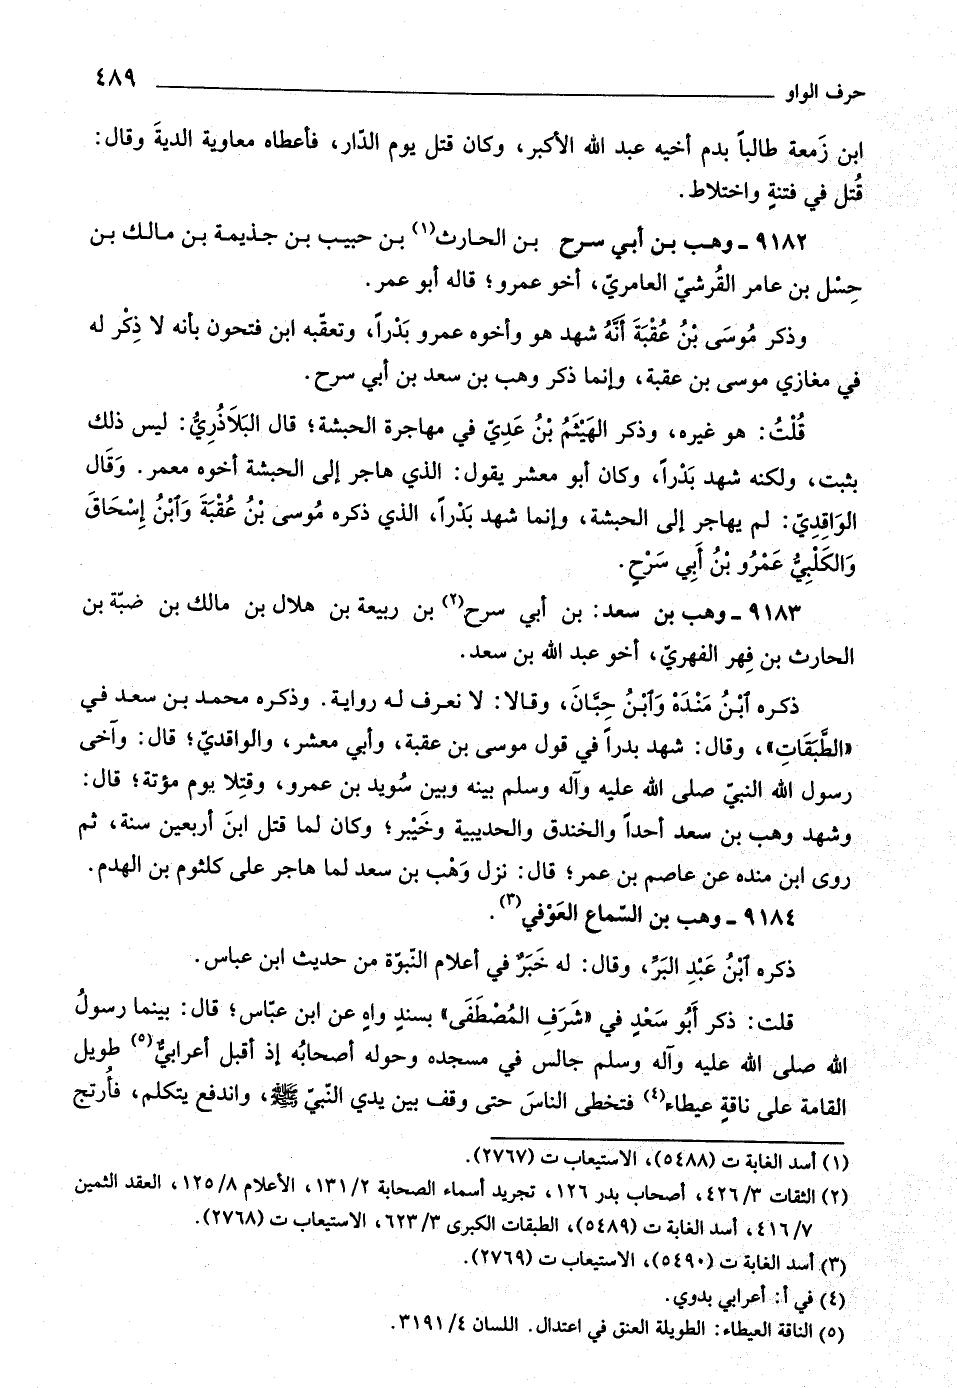 حرف الواو ٤٨٩
ابن زَمعة طالباً بدم أخيه عبد الله الأكبر، وكان قتل يوم الدّار، فأعطاه معاوية الديةَ وقال:
قُتل في فتنةٍ واختلاط.
٩١٨٢ ـ وهـب بـن أبي سـرح بـن الحـارث(١) بـن حبيـب بـن جـذيمـة بـن مـالـك بـن
حِسْل بن عامر القُرشيّ العامريّ، أخو عمرو؛ قاله أبو عمر.
وذكر مُوسَى بْنُ عُقْبَةَ أَنَّهُ شهد هو وأخوه عمرو بَدْراً، وتعقّبه ابن فتحون بأنه لا ذِكْر له
في مغازي موسى بن عقبة، وإنما ذكر وهب بن سعد بن أبي سرح.
قُلْتُ: هو غيره، وذكر الهَيْثَمُ بْنُ عَدِيّ في مهاجرة الحبشة؛ قال البَلَاذُرِيُّ: ليس ذلك
بثبت، ولكنه شهد بَدْراً، وكان أبو معشر يقول: الذي هاجر إلى الحبشة أخوه معمر. وَقَال
الوَاقِدِيّ: لم يهاجر إلى الحبشة، وإنما شهد بَدْراً، الذي ذكره مُوسى بْنُ عُقْبَةَ وَٱبْنُ إِسْحَاقَ
وَالكَلْبِيُّ عَمْرُو بْنُ أَبِي سَرْحٍ.
٩١٨٣ ـ وهب بن سعد: بن أبي سرح(٢) بن ربيعة بن هلال بن مالك بن ضبّة بن
الحارث بن فِهر الفهريّ، أخو عبد الله بن سعد.
ذكـره ٱبْنُ مَنْدَهْ وَٱبْنُ حِبَّانَ، وقـالا: لا نعـرف لـه روايـة. وذكـره محمـد بـن سعـد فـي
«الطَّبَقَاتِ»، وقال: شهد بدراً في قول موسى بن عقبة، وأبي معشر، والواقديّ؛ قال: وآخى
رسول الله النبيّ صلى الله عليه وآله وسلم بينه وبين سُويد بن عمرو، وقتِلا يوم مؤتة؛ قال:
وشهد وهب بن سعد أحداً والخندق والحديبية وخَيْبر؛ وكان لما قتل ابنَ أربعين سنة، ثم
روى ابن منده عن عاصم بن عمر؛ قال: نزل وَهْب بن سعد لما هاجر على كلثوم بن الهدم.
٩١٨٤ ـ وهب بن السّماع العَوْفي(٣).
ذكره ٱبْنُ عَبْدِ البَرِّ، وقال: له خَبَرٌ في أعلام النّبوّة من حديث ابن عباس.
قلت: ذكر أَبُو سَعْدٍ في «شَرَفِ المُصْطَفَى» بسندٍ واهٍ عن ابن عبّاس؛ قال: بينما رسولُ
الله صلى الله عليه وآله وسلم جالس في مسجده وحوله أصحابُه إذ أقبل أعرابيٌّ(٥) طويل
القامة على ناقةٍ عيطاء(٤) فتخطى الناسَ حتى وقف بين يدي النّبيّ ﷺ، واندفع يتكلم، فأُرتج
(١) أسد الغابة ت (٥٤٨٨)، الاستيعاب ت (٢٧٦٧).
(٢) الثقات ٣/ ٤٢٦، أصحاب بدر ١٢٦، تجريد أسماء الصحابة ٢/ ١٣١، الأعلام ٨/ ١٢٥، العقد الثمين
٧/ ٤١٦، أسد الغابة ت (٥٤٨٩)، الطبقات الكبرى ٣/ ٦٢٣، الاستيعاب ت (٢٧٦٨).
(٣) أسد الغابة ت (٥٤٩٠)، الاستيعاب ت (٢٧٦٩).
(٤) في أ: أعرابي بدوي.
(٥) الناقة العيطاء: الطويلة العنق في اعتدال. اللسان ٤/ ٣١٩١.